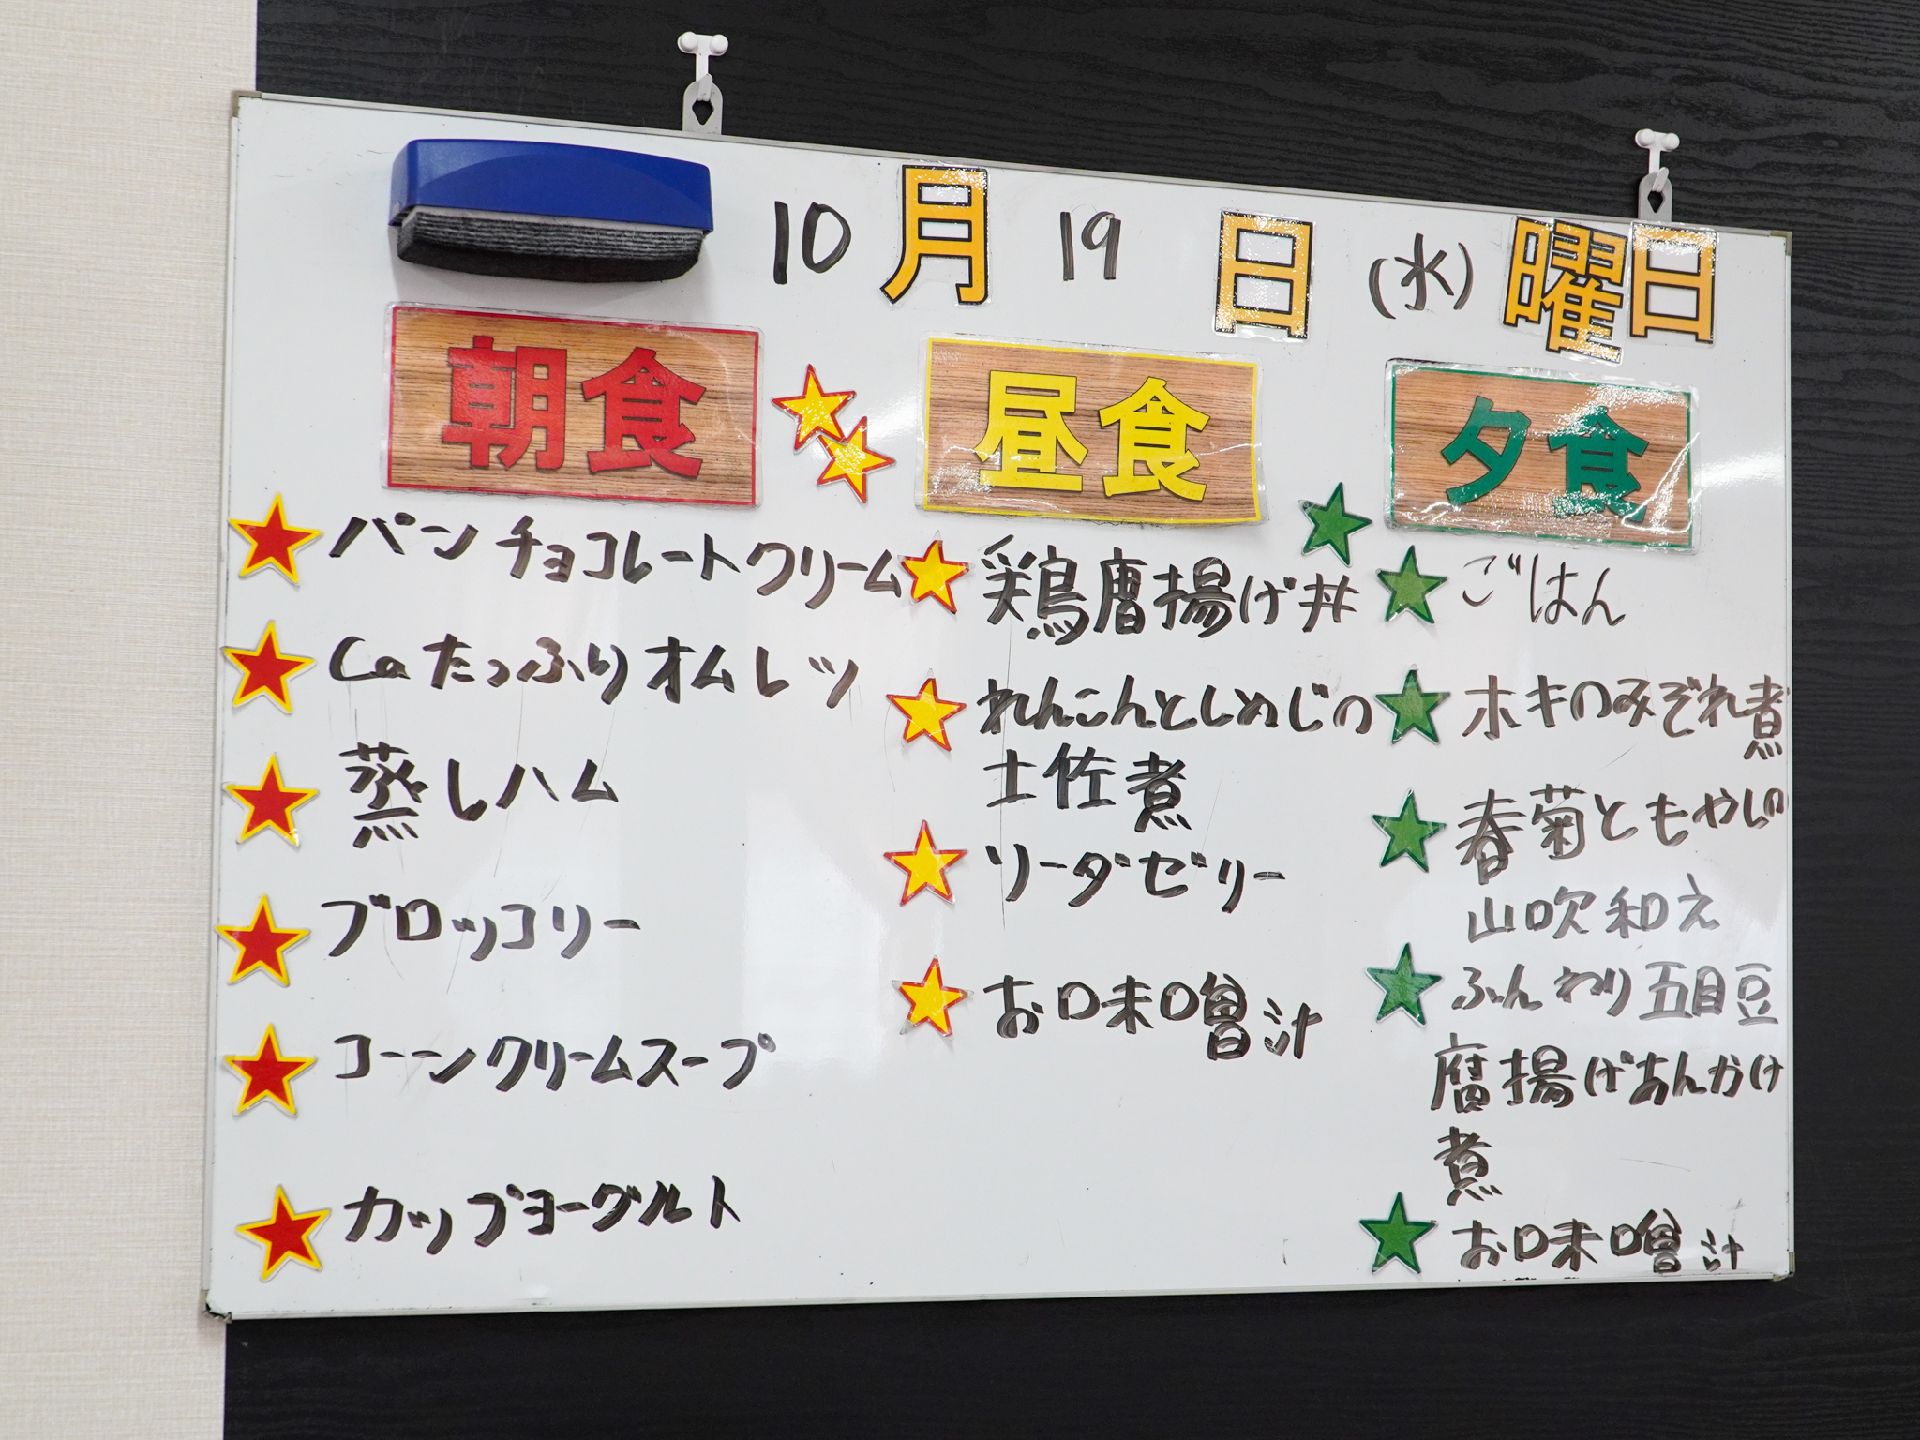 10月19日(水)曜日
朝食
パン チョコレートクリーム
Caたっぷりオムレツ
蒸しハム
ブロッコリー
コーンクリームスープ
カップヨーグルト
昼食
鶏唐揚げ丼
れんこんとしめじの
土佐煮
ソーダゼリー
お味噌汁
夕食
ごはん
ホキのみぞれ煮
春菊ともやしの
山吹和え
ふんわり五目豆
腐揚げあんかけ
煮
お味噌汁